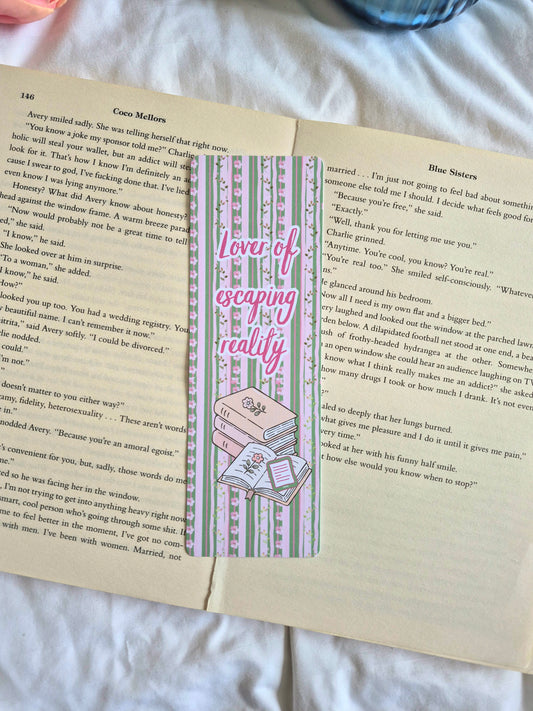 146
Coco Mellors
Avery smiled sadly. She was telling herself that right now.
"You know a joke my sponsor told me?" Charlie
holic will steal your wallet, but an addict will stea
look for it. That's how I know I'm definitely an a
cause I swear to god, I've fucking done that. I've lied
even know I was lying anymore."
Honesty? What did Avery know about honesty?
head against the window frame. A warm breeze parad
"Now would probably not be a great time to tell
ed," she said.
"I know," he said.
She looked over at him in surprise.
"To a woman," she added.
"I know," he said.
"How?"
looked you up too. You had a wedding registry. You
beautiful name. I can't remember it now."
itrita," said Avery softly. "I could be divorced."
lie nodded.
could."
I'm not."
doesn't matter to you either way?"
amy, fidelity, heterosexuality . . . These aren't words
in."
nodded Avery. "Because you're an amoral egoist."
t's convenient for you, but, sadly, those words do me
ed so he was facing her in the window.
, I'm not trying to get into anything heavy right now
smart, cool person who's going through some shit. I
e to feel better in the moment, I've got no com-
with men. I've been with women. Married, not
Lover of
escaping
reality
Blue Sisters
married . . . I'm just not going to feel bad about somethin
someone else told me I should. I decide what feels good for
"Because you're free," she said.
"Exactly."
"Well, thank you for letting me use you."
Charlie grinned.
"Anytime. You're cool, you know? You're real."
"You're real too." She smiled self-consciously. "Whateve
ns."
He glanced around his bedroom.
Now all I need is my own flat and a bigger bed."
ery laughed and looked out the window at the parched lawn
rden below. A dilapidated football net stood at one end, a bea
uth of frothy-headed hydrangea at the other. Somewhe
an open window she could hear an audience laughing on TV
know what I think really makes me an addict?" she asked
how many drugs I took or how much I drank. It's not eve
aled so deeply that her lungs burned.
what gives me pleasure and I do it until it gives me pain,"
very time."
ooked at her with his funny half smile.
t how else would you know when to stop?"